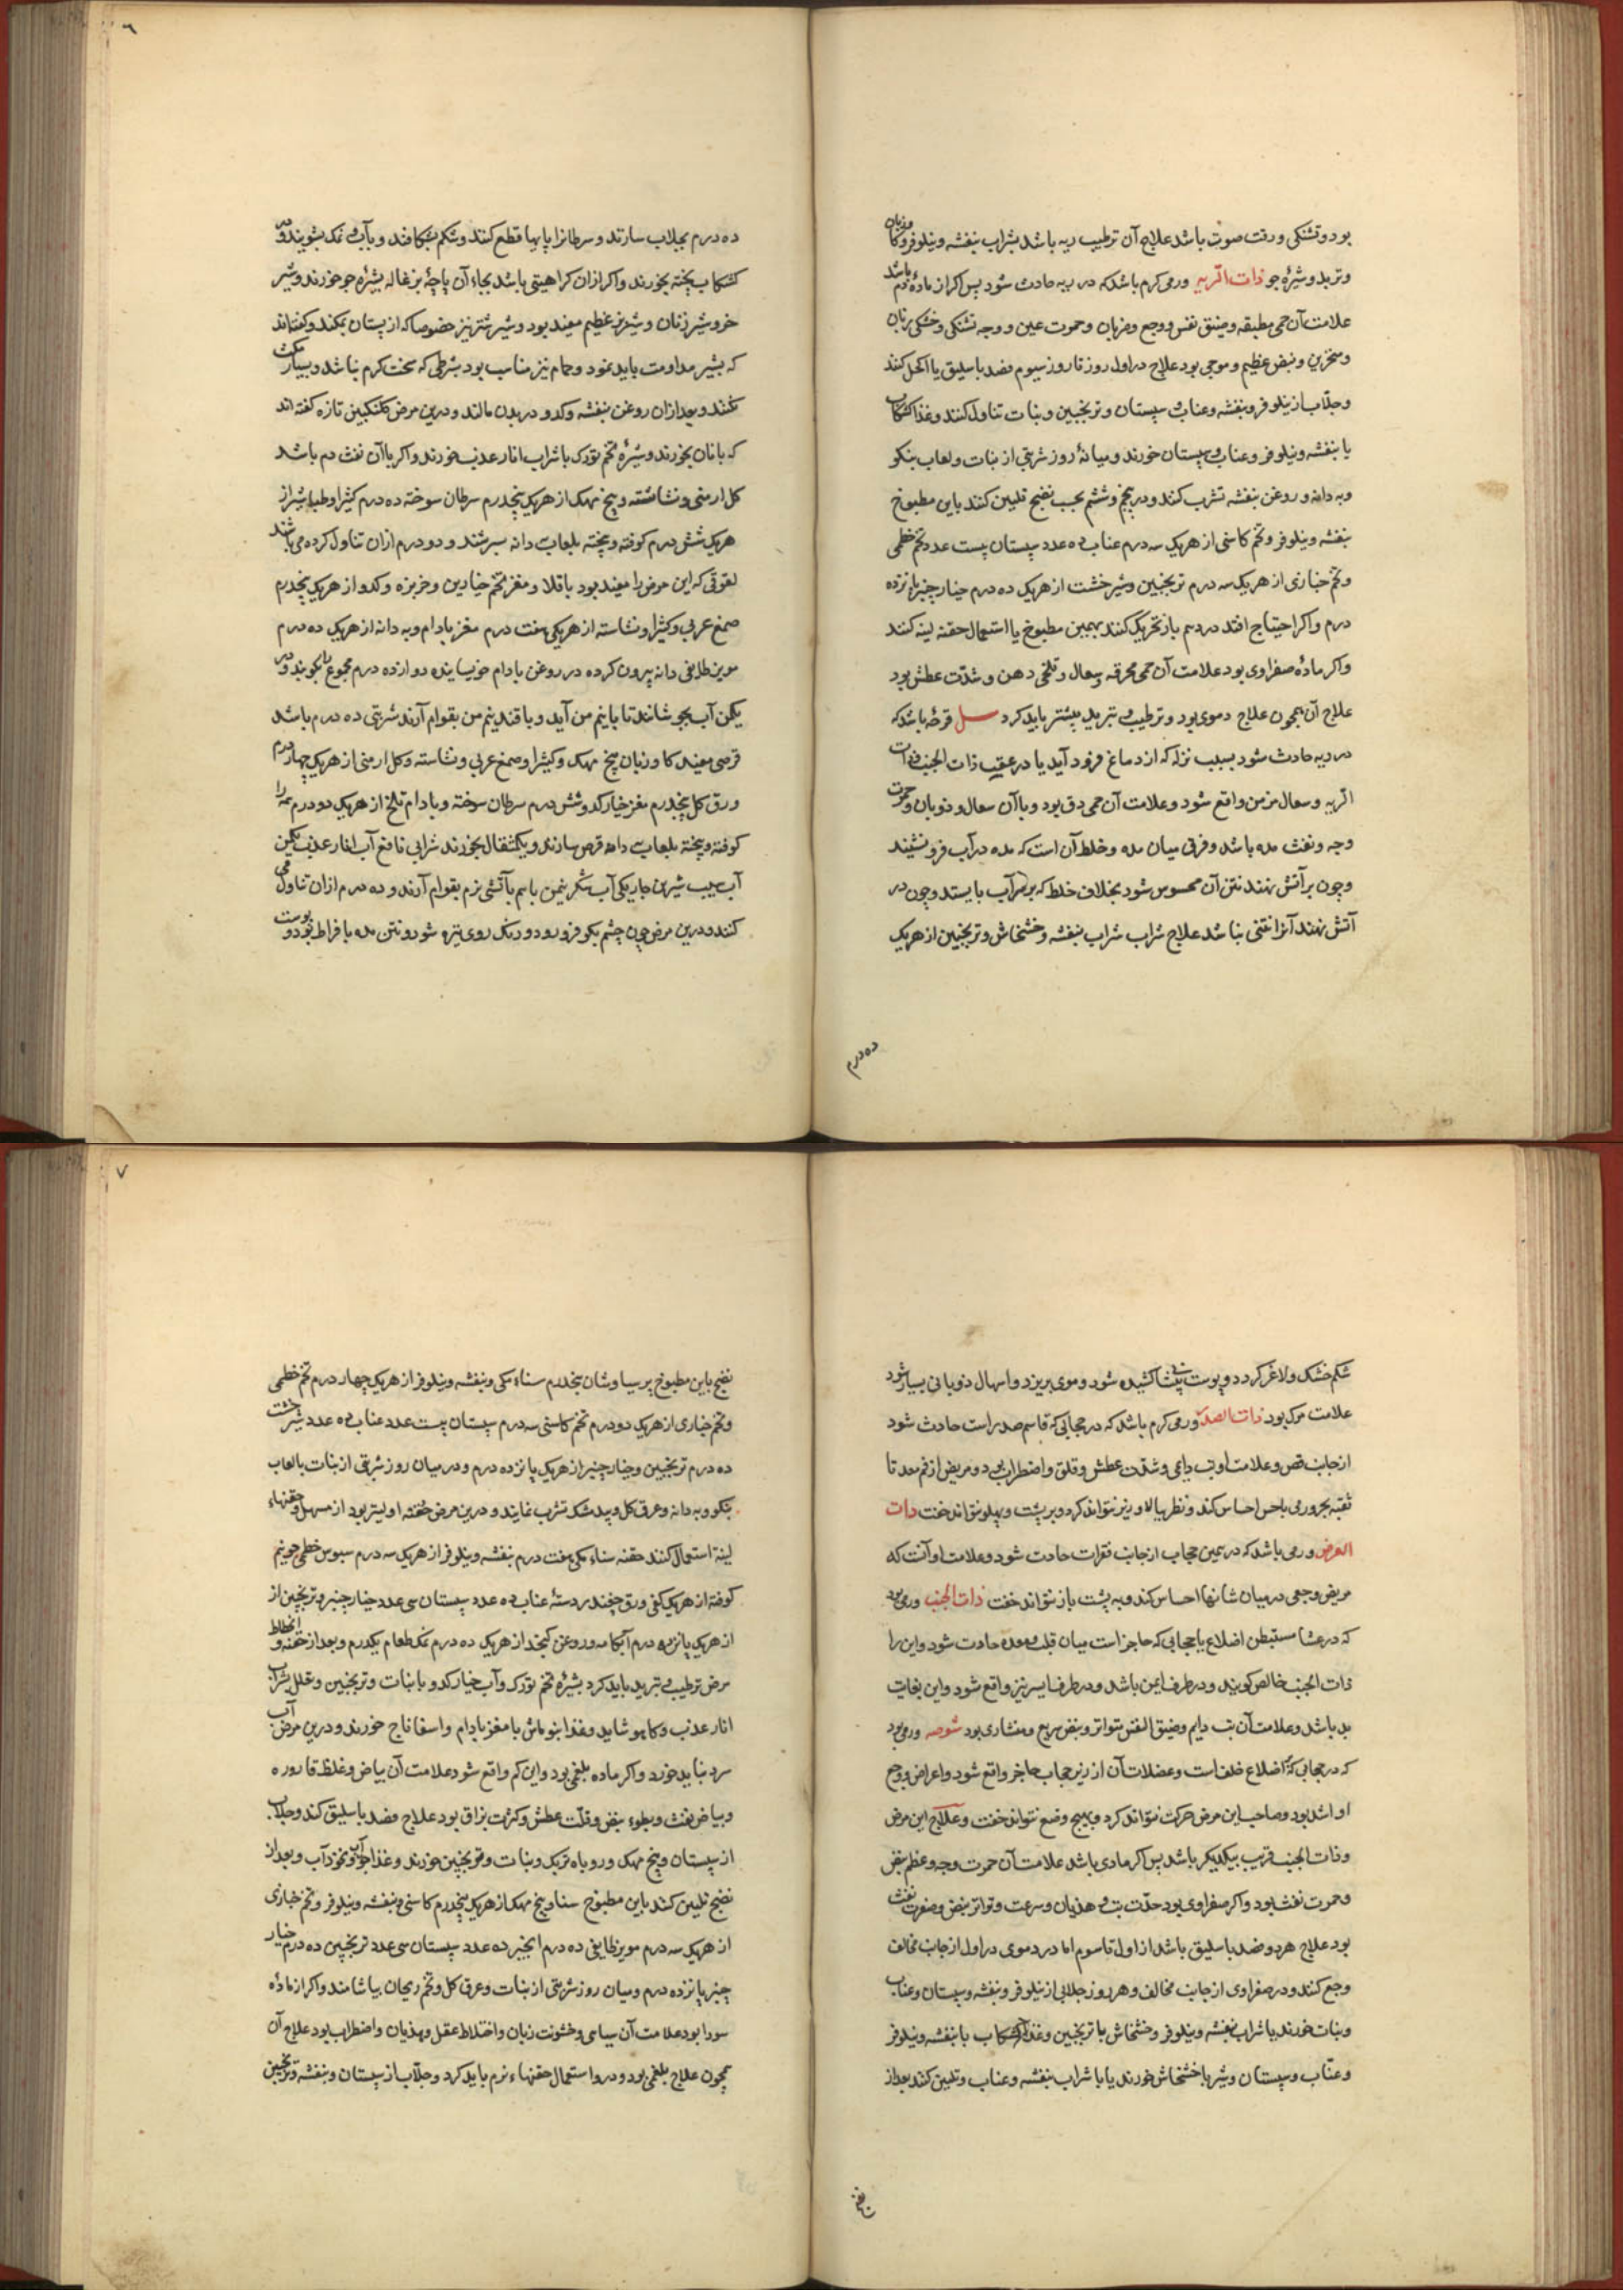 بود و تشنگی و رقت صوت باشد علاج آن ترطیب ریه باشد بشراب بنفشه و نیلوفر و کاوزبان
و تربد و شیره جو ذات الریه ورمی کرم باشد که در ریه حادث شود پس اکر از ماده دم باشد
علامت آن حمی مطبقه و ضیق نفس و وجع و ضربان و حمرت عین و وجه و تشنکی و خشکی زبان
و منخرین و نبض عظیم و موجی بود علاج در اول روز تا روز سیوم فصد باسلیق یا اکحل کنند
و جلاب از نیلوفر و بنفشه و عناب و سپستان و ترنجبین و نبات تناول کنند و غذا کشکاب
با بنفشه و نیلوفر و عناب و سپستان خورند و میانهٔ روز شربتی از نبات و لعاب بنکو
و به دانه و روغن بنفشه تشرب کنند و در پنجم و ششم بحسب نضج تلیین کنند باین مطبوخ
بنفشه و نیلوفر و تخم کاسنی از هریک سه درم عناب ده عدد سپستان بیست عدد تخم خطمی
و تخم خبازی از هریک سه درم ترنجبین و شیرخشت از هریک ده درم خیار چنبر پانزده
درم و اکر احتیاج افتد در دهم باز تحریک کنند بهمین مطبوخ یا استعمال حقنه لینه کنند
و اکر ماده صفراوی بود علامت آن حمی محرقه و سعال و تلخی دهن و شدت عطش بود
علاج آن همچون علاج دموی بود و ترطیب و تبرید بیشتر باید کرد سل قرحه باشد که
در ریه حادث شود بسبب نزله که از دماغ فرود آید یا در عقیب ذات الجنب و ذات
الریه و سعال مزمن واقع شود و علامت آن حمی دق بود و با آن سعال و ذوبان و حمرت
وجه و نفث مده باشد و فرق میان مده و خلط آن است که مده در آب فرو نشیند
و چون بر آتش نهند نتن آن محسوس شود بخلاف خلط که بر سر آب بایستد و چون در
آتش نهند آنرا نتنی نباشد علاج شراب شراب بنفشه و خشخاش و ترنجبین از هریک
ده درم
٦
ده درم بجلاب سازند و سرطانرا پایها قطع کنند و شکم بشکافند و بآب و نمک بشویند و در
کشکاب پخته بخورند و اکر ازان کراهیتی باشد بجاء آن پاچهٔ بزغاله بشیره جو خورند و شیر
خر و شیر زنان و شیر بز عظیم مفید بود و شیر شتر نیز خصوصا که از پستان بمکند و کفته‌اند
که بشیر مداومت باید نمود و حمام نیز مناسب بود بشرطی که سخت کرم نباشد و بسیار مکث
نکنند و بعد ازان روغن بنفشه و کدو در بدن مالند و درین مرض کلنکبین تازه کفته اند
که با نان بخورند و شیرهٔ تخم تورک با شراب انار عذب خورند و اکر با آن نفث دم باشد
کل ارمنی و نشاسته و بیخ مهک از هریک پنجدرم سرطان سوخته ده درم کثیرا و طباشیر از
هریک شش درم کوفته و بیخته بلعاب دانه سرشند و دو درم ازان تناول کرده می باشند
لعوقی که این مرض را مفید بود باقلا و مغز تخم خیارین و خربزه و کدو از هریک پنجدرم
صمغ عربی و کثیرا و نشاسته از هریکی هفت درم مغز بادام و به دانه از هریک ده درم
مویز طایفی دانه بیرون کرده در روغن بادام خیسانیده دوازده درم مجموع را بکوبند و در
یکمن آب بجوشانند تا با نیم من آید و با قند نیم من بقوام آرند شربتی ده درم باشد
قرصی مفید کاوزبان بیخ مهک و کثیرا و صمغ عربی و نشاسته و کل ارمنی از هریک چهار درم
ورق کل پنجدرم مغز خیار کدو شش درم سرطان سوخته و بادام تلخ از هریک دو درم همه را
کوفته و بیخته بلعاب به دانه قرص سازند و یکمثقال بخورند شرابی نافع آب انار عذب یکمن
آب سیب شیرین چاریکی آب شکر نیمن باهم بآتشی نرم بقوام آرند و ده درم ازان تناول می
کنند و درین مرض چون چشم بکو فرو رود و رنک روی تیره شود و نتن مده بافراط بود و پوست
شکم خشک و لاغر کردد و پوست پیشانی کشیده شود و موی بریزد و اسهال ذوبانی بسیار شود
علامت مرک بود ذات الصدر ورمی کرم باشد که در حجابی که قاسم صدر است حادث شود
از جانب قص و علامت او تب دایمی و شدت عطش و قلق و اضطراب بود و مریض از فم معده تا
ثقبه نحر ورمی باحس احساس کند و نظر ببالا و زیر نتواند کرد و بر پشت و پهلو نتواند خفت ذات
العرض ورمی باشد که در همین حجاب از جانب فقرات حادث شود و علامت او آنست که
مریض وجعی در میان شانها احساس کند و به پشت باز نتواند خفت ذات الجنب ورمی بود
که در غشا مستبطن اضلاع یا حجابی که حاجز است میان قلب و معده حادث شود و این را
ذات الجنب خالص کویند و در طرف ایمن باشد و در طرف ایسر نیز واقع شود و این بغایت
بد باشد و علامت آن تب دایم و ضیق النفس متواتر و نبض سریع و منشاری بود شوصه ورمی بود
که در حجابی که اضلاع خلف است و عضلات آن از زیر حجاب حاجز واقع شود و اعراض و وجع
او اشد بود و صاحب این مرض حرکت نتواند کرد و بهیچ وضع نتواند خفت و علاج این مرض
و ذات الجنب قریب بیکدیکر باشد پس اکر مادی باشد علامت آن حمرت وجه و عظم نبض
و حمرت نفث بود و اکر صفراوی بود حدت تب و هذیان و سرعت و تواتر نبض و صفرت نفث
بود علاج هردو فصد باسلیق باشد از اول تا سوم اما در دموی در اول از جانب مخالف
وجع کنند و در صفراوی از جانب مخالف و هر روز جلابی از نیلوفر و بنفشه و سپستان و عناب
و نبات خورند یا شراب بنفشه و نیلوفر و خشخاش با ترنجبین و غذا کشکاب با بنفشه و نیلوفر
و عناب و سپستان و شیر با خشخاش خورند یا با شراب بنفشه و عناب و تلیین کنند بعد از
نضج
٧
نضج باین مطبوخ پرسیاوشان پنجدرم سناء مکی و بنفشه و نیلوفر از هریک چهار درم تخم خطمی
و تخم خبازی از هریک دو درم تخم کاسنی سه درم سپستان بیست عدد عناب ده عدد شیرخشت
ده درم ترنجبین و خیار چنبر از هریک پانزده درم و در میان روز شربتی از نبات بالعاب
بنکو و به دانه و عرق کل و بیدمشک تشرب نمایند و درین مرض حقنه اولیتر بود از مسهل و حقنهاء
لینة استعمال کنند حقنه سناء مکی هفت درم بنفشه و نیلوفر از هریک سه درم سبوس خطمی جو نیم
کوفته از هریک کفی ورق چغندر دستهٔ عناب ده عدد سپستان سی عدد خیار چنبر و ترنجبین از
از هریک پانزده درم آبکامه و روغن کنجد از هریک ده درم نمک طعام یکدرم و بعد از حقنه و انحطاط
مرض ترطیب و تبرید باید کرد بشیرهٔ تخم تورک و آب خیار کدو با نبات و ترنجبین و علل شراب
انار عذب و کاهو شاید و غذا بنو ماش با مغز بادام و اسفاناج خورند و درین مرض آب
سرد نباید خورد و اکر ماده بلغمی بود و این کم واقع شود علامت آن بیاض و غلظ قاروره
و بیاض نفث و بطوء نبض و قلت عطش و کثرت بزاق بود علاج فصد باسلیق کند و جلاب
از سپستان و بیخ مهک و روباه تربک و نبات و ترنجبین خورند و غذا جواب و نخودآب و بعد از
نضج تلیین کنند باین مطبوخ سنا و بیخ مهک از هریک پنجدرم کاسنی و بنفشه و نیلوفر و تخم خبازی
از هریک سه درم مویز طایفی ده درم انجیر ده عدد سپستان سی عدد ترنجبین ده درم خیار
چنبر پانزده درم و میان روز شربتی از نبات و عرق کل و تخم ریحان بیاشامند و اکر از ماده
سودا بود علامت آن سیاهی و خشونت زبان و اختلاط عقل و هذیان و اضطراب بود علاج آن
همچون علاج بلغمی بود و درو استعمال حقنهاء نرم باید کرد و جلاب از سپستان و بنفشه و ترنجبین